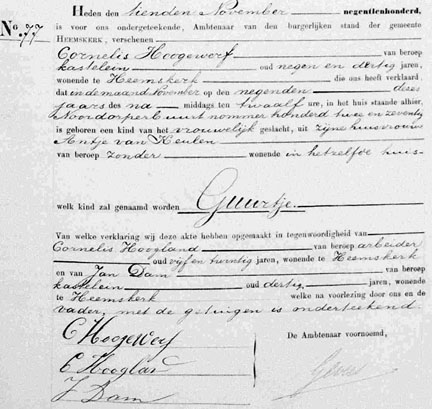 Heden den tienden November negentienhonderd,
No. 77
is voor ons ondergeteekende, Ambtenaar van den burgerlijken stand der gemeente
HEEMSKERK, verschenen
Cornelis Hoogeworf van beroep
kastelein oud negen en dertig jaren,
wonende te Heemskerk die ons heeft verklaard,
dat in de maand November op den negenden dezes
jaars des na middags ten twaalf ure, in het huis staande alhier,
Noordorperbuurt nommer honderd twee en zeventig
is geboren een kind van het vrouwelijk geslacht, uit zijne huisvrouw
Antje van Keulen
van beroep zonder wonende in hetzelfde huis
welk kind zal genaamd worden Guurtje.
Van welke verklaring wij deze akte hebben opgemaakt in tegenwoordigheid van
Cornelis Hoogland van beroep arbeider
oud vijf en twintig jaren, wonende te Heemskerk
en van Jan Dam van beroep
kastelein oud dertig jaren, wonende
te Heemskerk welke na voorlezing door ons en de
vader, met de getuigen is onderteekend
C Hoogeworf
De Ambtenaar voornoemd,
C Hoogland
J Dam